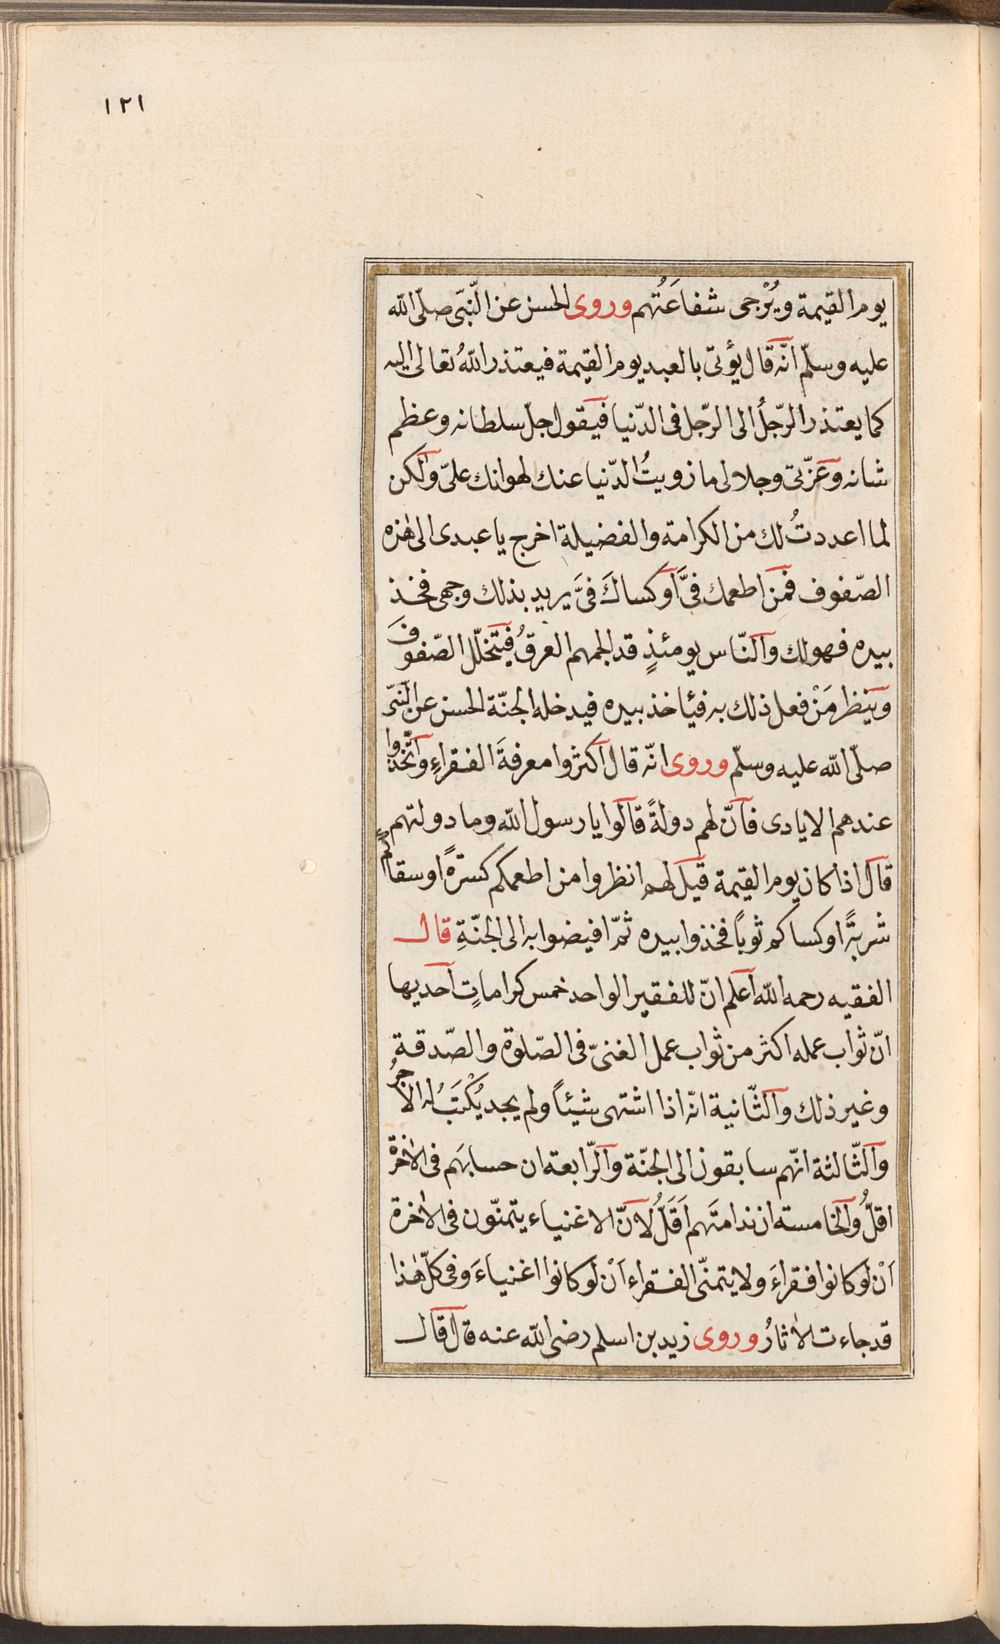 ١٢١
يوم القيمة ويُرْجى شفاعَتُهم وروى الحسن عن النّبىّ صلّى الله
عليه وسلّم انّه قال يؤتى بالعبد يوم القيمة فيعتذر اللهُ تعالى اليه
كما يعتذر الرّجلُ الى الرّجل فى الدّنيا فيقول جلّ سلطانه وعظم
شانه وعزّتى وجلالى ما زويتُ الدّنيا عنك لهوانك علىّ ولكن
لما اعددتُ لك من الكرامة والفضيلة اخرج يا عبدى الى هذه
الصّفوف فمن اطعمك فىَّ اوكساكَ فىَّ يريد بذلك وجهى فخذ
بيده فهو لك والنّاس يومئذٍ قد الجمهم العرقُ فيتخلّل الصّفوفَ
وينظر مَنْ فعل ذلك به فيئاخذ بيده فيدخله الجنّة الحسن عن النّبىّ
صلّى الله عليه وسلّم وروى انّه قال اكثروا معرفةَ الفقراءِ واتّخذوا
عندهم الايادى فانّ لهم دولةً قالوا يا رسول الله وما دولتهم
قال اذا كان يوم القيمة قيل لهم انظروا من اطعمكم كسرةً اوسقاكم
شربةً اوكساكم ثوباً فخذوا بيده ثمّ افيضوا به الى الجنّةِ قال
الفقيه رحمه الله اعلم انّ للفقير الواحد خمس كراماتٍ احديها
انّ ثواب عمله اكثر من ثواب عمل الغنىّ فى الصّلوة والصّدقة
وغير ذلك والثّانية انّه اذا اشتهى شيئاً ولم يجد يُكْتَبُ له الاجرُ
والثّالثة انّهم سابقون الى الجنّة والرّابعة ان حسابهَم فى الاخرة
اقلُّ والخامسة ان ندامتَهم اَقَلُّ لانّ الاغنياء يتمنّون فى الاخرة
اَنْ لوكانوا فقراءَ ولا يتمنّى الفقراء اَنْ لوكانوا اغنياءَ وفى كلّ هذا
قد جاءت الاثارُ وروى زيد بن اسلم رضى الله عنه قال قال